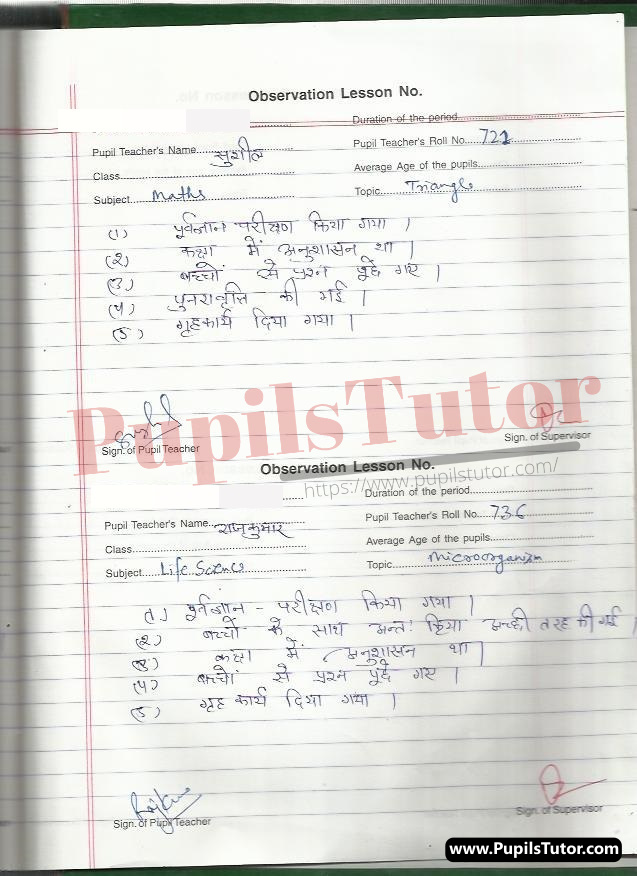 Observation Lesson No.
Duration of the period
Pupil Teacher's Name सुशील
Pupil Teacher's Roll No. 721
Class
Average Age of the pupils
Subject Maths
Topic Triangle
(1) पूर्वज्ञान परीक्षण किया गया ।
(२) कक्षा में अनुशासन था ।
(३) बच्चों से प्रश्न पूछे गए ।
(४) पुनरावृत्ति की गई ।
(५) गृहकार्य दिया गया ।
PupilsTutor
Sign. of Pupil Teacher
Sign. of Supervisor
Observation Lesson No.
https://www.pupilstutor.com/
Duration of the period
Pupil Teacher's Name राजकुमार
Pupil Teacher's Roll No. 736
Class
Average Age of the pupils
Subject Life Science
Topic Microorganism
(1) पूर्वज्ञान - परीक्षण किया गया ।
(२) बच्चों के साथ अन्तः क्रिया अच्छी तरह की गई
(३) कक्षा में अनुशासन था ।
(४) बच्चों से प्रश्न पूछे गए ।
(५) गृह कार्य दिया गया ।
Sign. of Pupil Teacher
Sign. of Supervisor
www.PupilsTutor.com